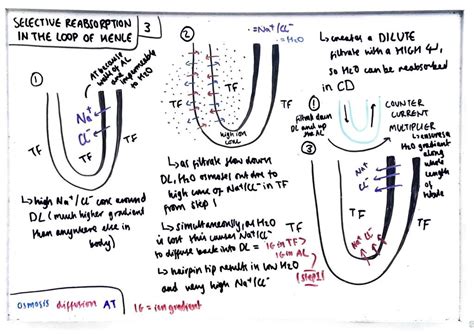 SELECTIVE REABSORPTION
IN THE LOOP OF HENLE
3
1
AT because
walls of AL
and
impermeable
to H2O
Na+
Cl-
TF
TF
TF
→ high Na+/Cl- conc around
DL (much higher gradient
then anywhere else in
body)
osmosis diffusion AT
IG = ion gradient
2
= Na+/Cl-
= H2O
TF
TF
high ion
conc
→ as filtrate flow down
DL, H2O osmoses out due to
high conc of Na+/Cl- in TF
from step 1
→ simultaneously, as H2O
is lost this causes Na+/Cl-
to diffuse back into DL =
IG in TF >
IG in AL
→ hairpin tip results in low H2O
and very high Na+/Cl-
step 1
→ creates a DILUTE
filtrate with a HIGH Ψ,
so H2O can be reabsorbed
in CD
1
filtrate down
DL and up
the AL
COUNTER
CURRENT
MULTIPLIER
→ ensures a
H2O gradient
along
whole
length
of
3
Na+
Cl-
TF
TF
TF
Na+
Cl-